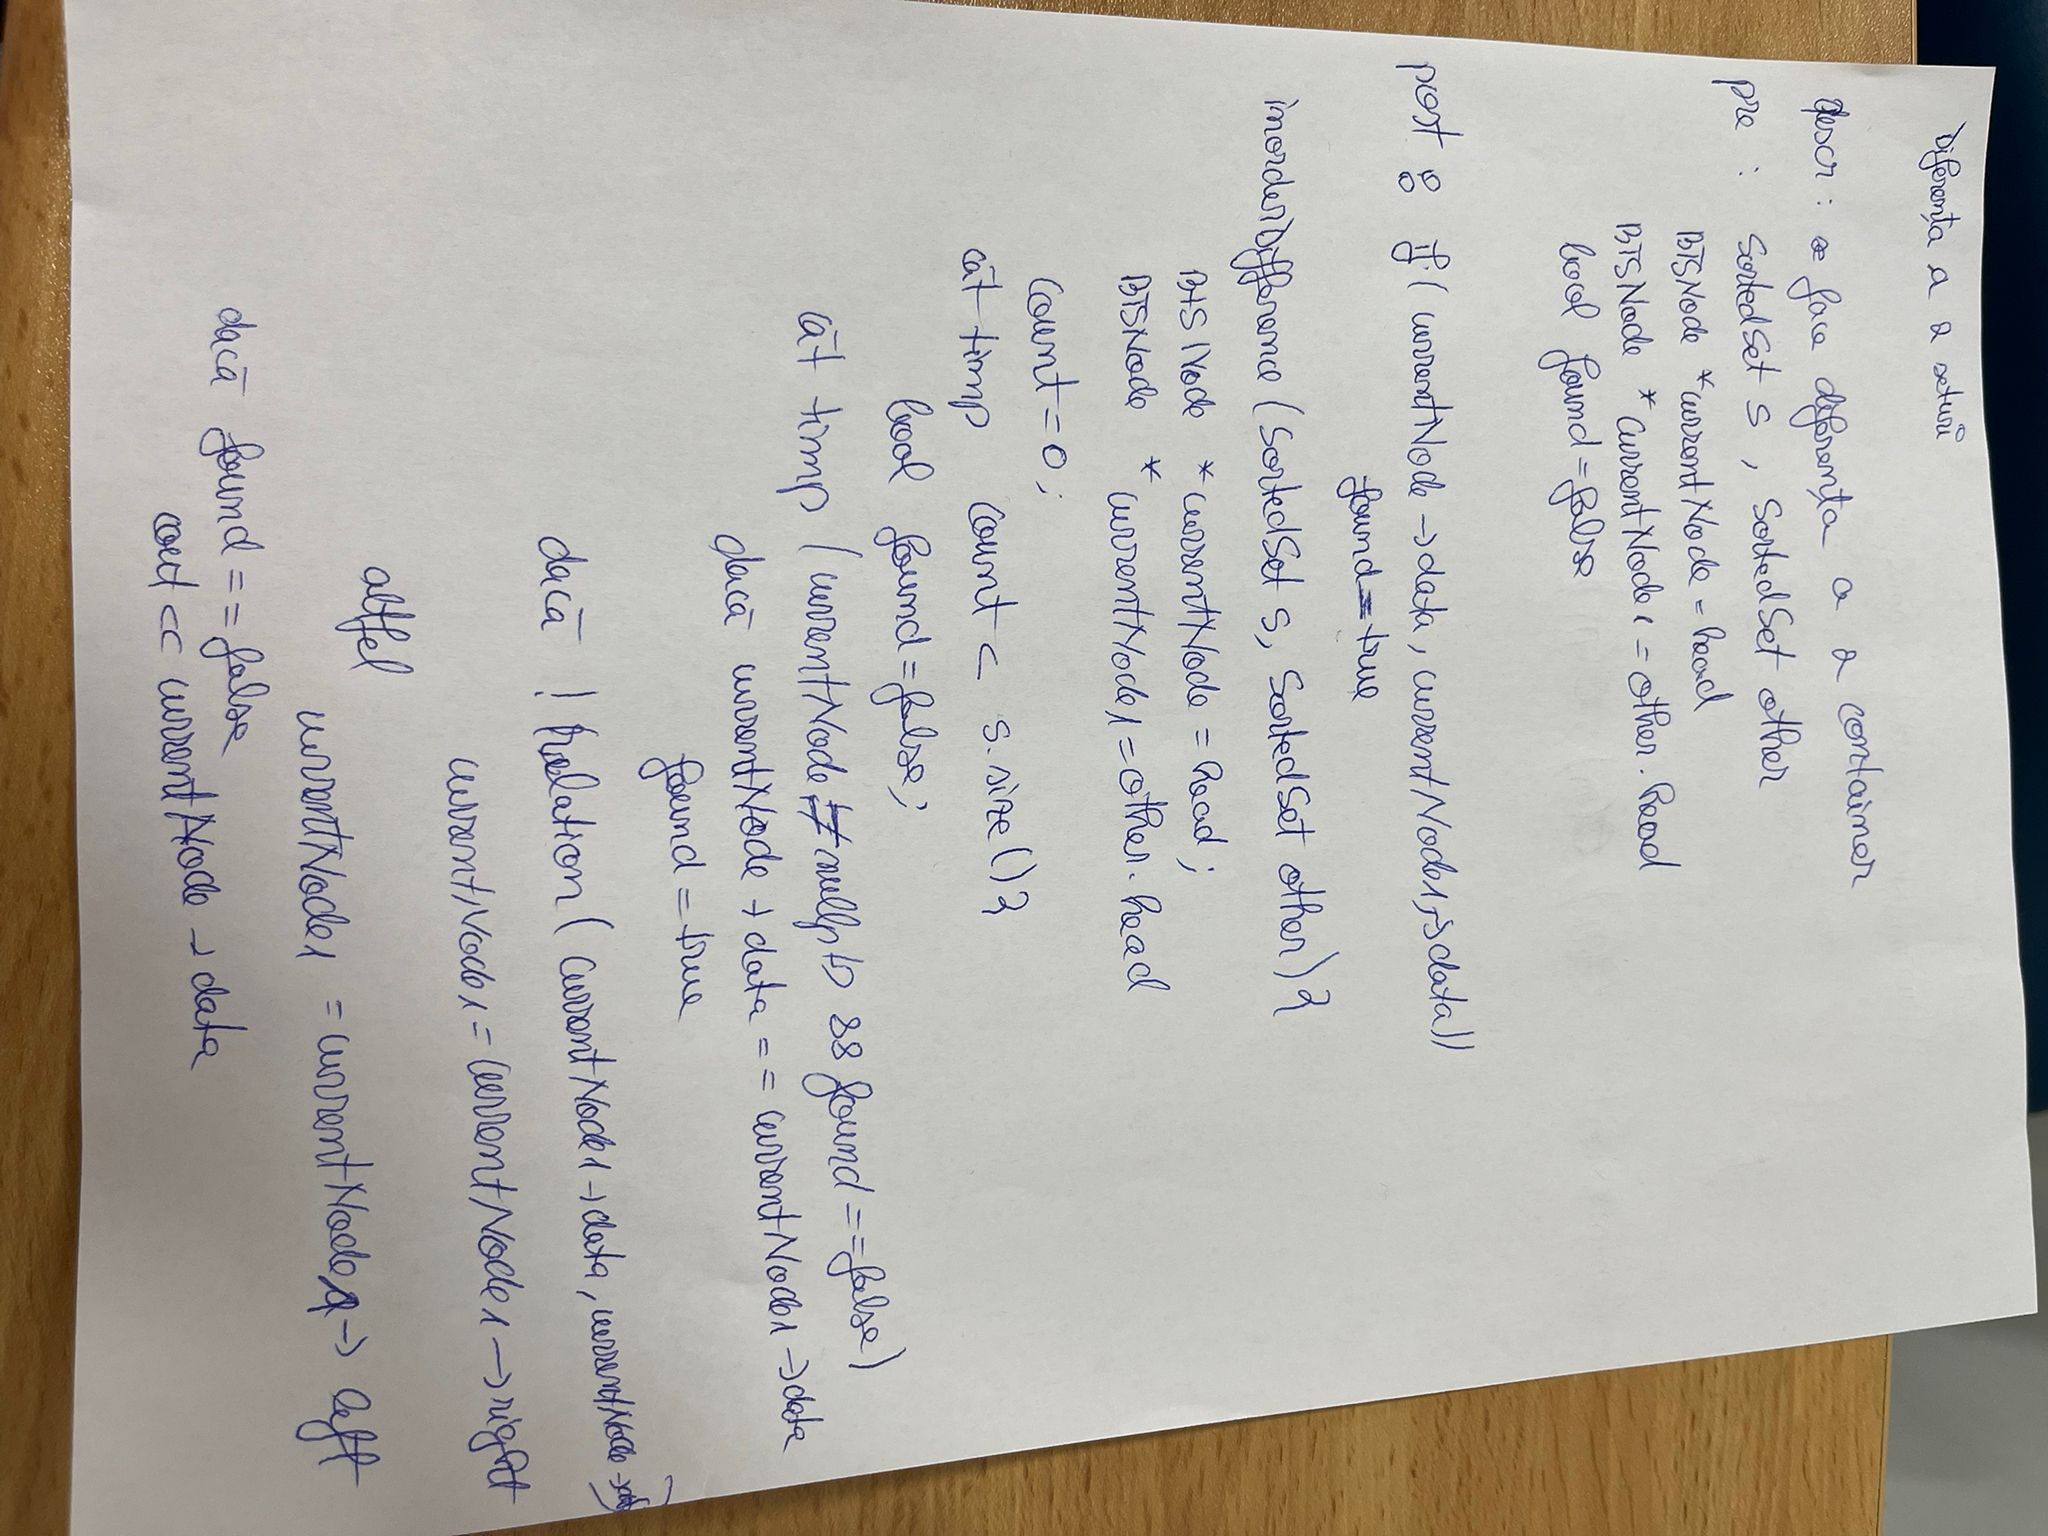 Diferența a 2 seturi
descr: se face diferența a 2 container
pre: SortedSet s, SortedSet other
BTSNode *currentNode = head
BTSNode *currentNode1 = other.head
bool found = false
post : if (currentNode->data, currentNode1->data))
found = true
inorderDifference (SortedSet s, SortedSet other){
BTSNode *currentNode = head;
BTSNode *currentNode1 = other.head
count = 0;
cât timp count < s.size(){
bool found = false;
cât timp (currentNode1 ≠ nullptr && found == false)
dacă currentNode → data == currentNode1 → data
found = true
dacă !relation (currentNode1 → data, currentNode → data)
currentNode1 = currentNode1 → right
altfel
currentNode1 = currentNode1 → left
dacă found == false
cout << currentNode → data